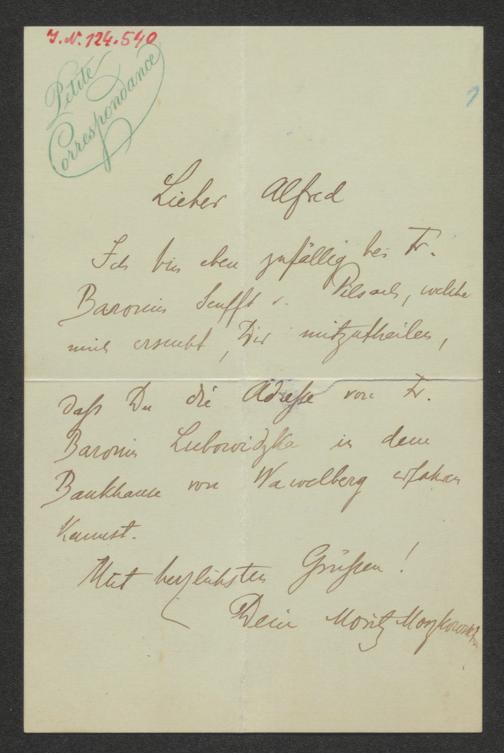 J.N. 124.540
Petite
Correspondance
1
Lieber Alfred
Ich bin eben zufällig bei Fr.
Baronin Senfft v. Pilsach, welche
mich ersucht, Dir mitzutheilen,
daß Du die Adresse von Fr.
Baronin Lubowidzka in dem
Bankhause von Wawelberg erfahren
kannst.
Mit herzlichsten Grüßen!
Dein Moritz Moszkowski